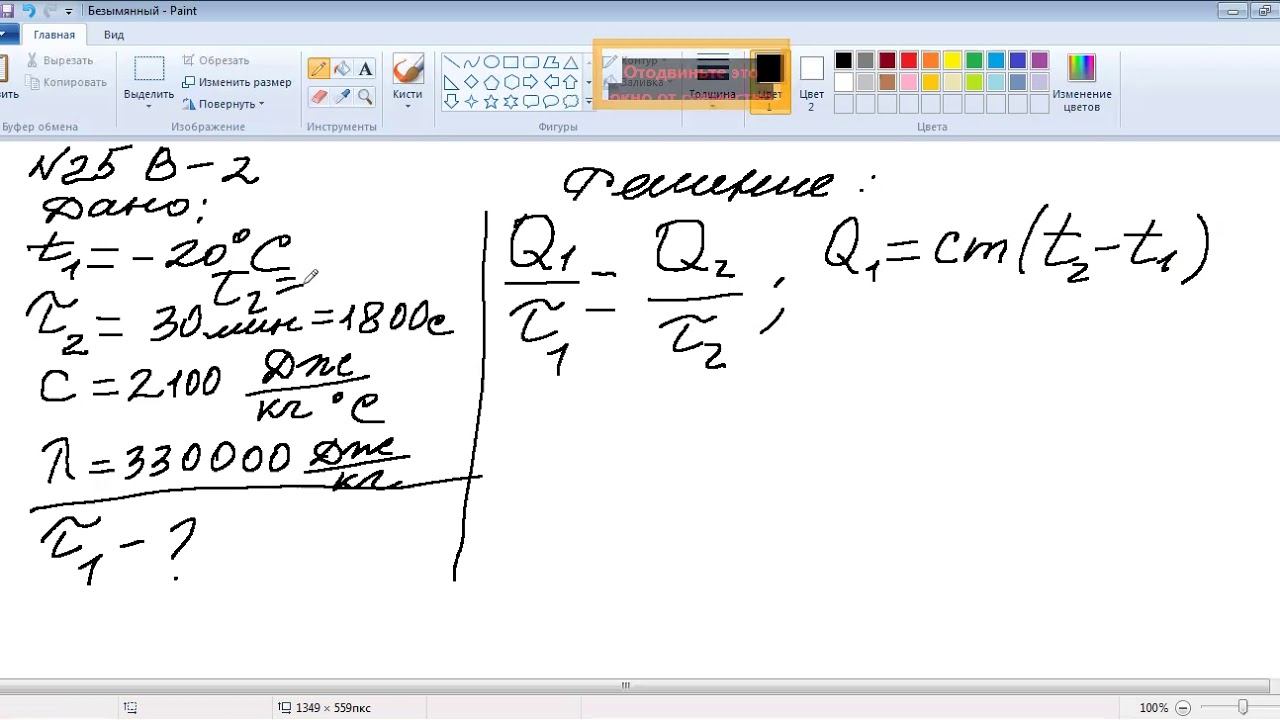 Безымянный - Paint
Главная Вид
Вырезать
Копировать
Буфер обмена
Выделить
Обрезать
Изменить размер
Повернуть
Изображение
Инструменты
Кисти
Фигуры
Контур
Заливка
Отодвиньте это
окно от
Толщина
Цвет 1
Цвет 2
Изменение цветов
Цвета
N25 В-2
Дано:
t₁ = -20°C
τ₂ =
τ₂ = 30 мин = 1800с
C = 2100 Дж/кг °C
λ = 330000 Дж/кг
τ₁ - ?
Решение:
Q₁/τ₁ = Q₂/τ₂ ; Q₁ = cm(t₂ - t₁)
1349 × 559пкс
100%